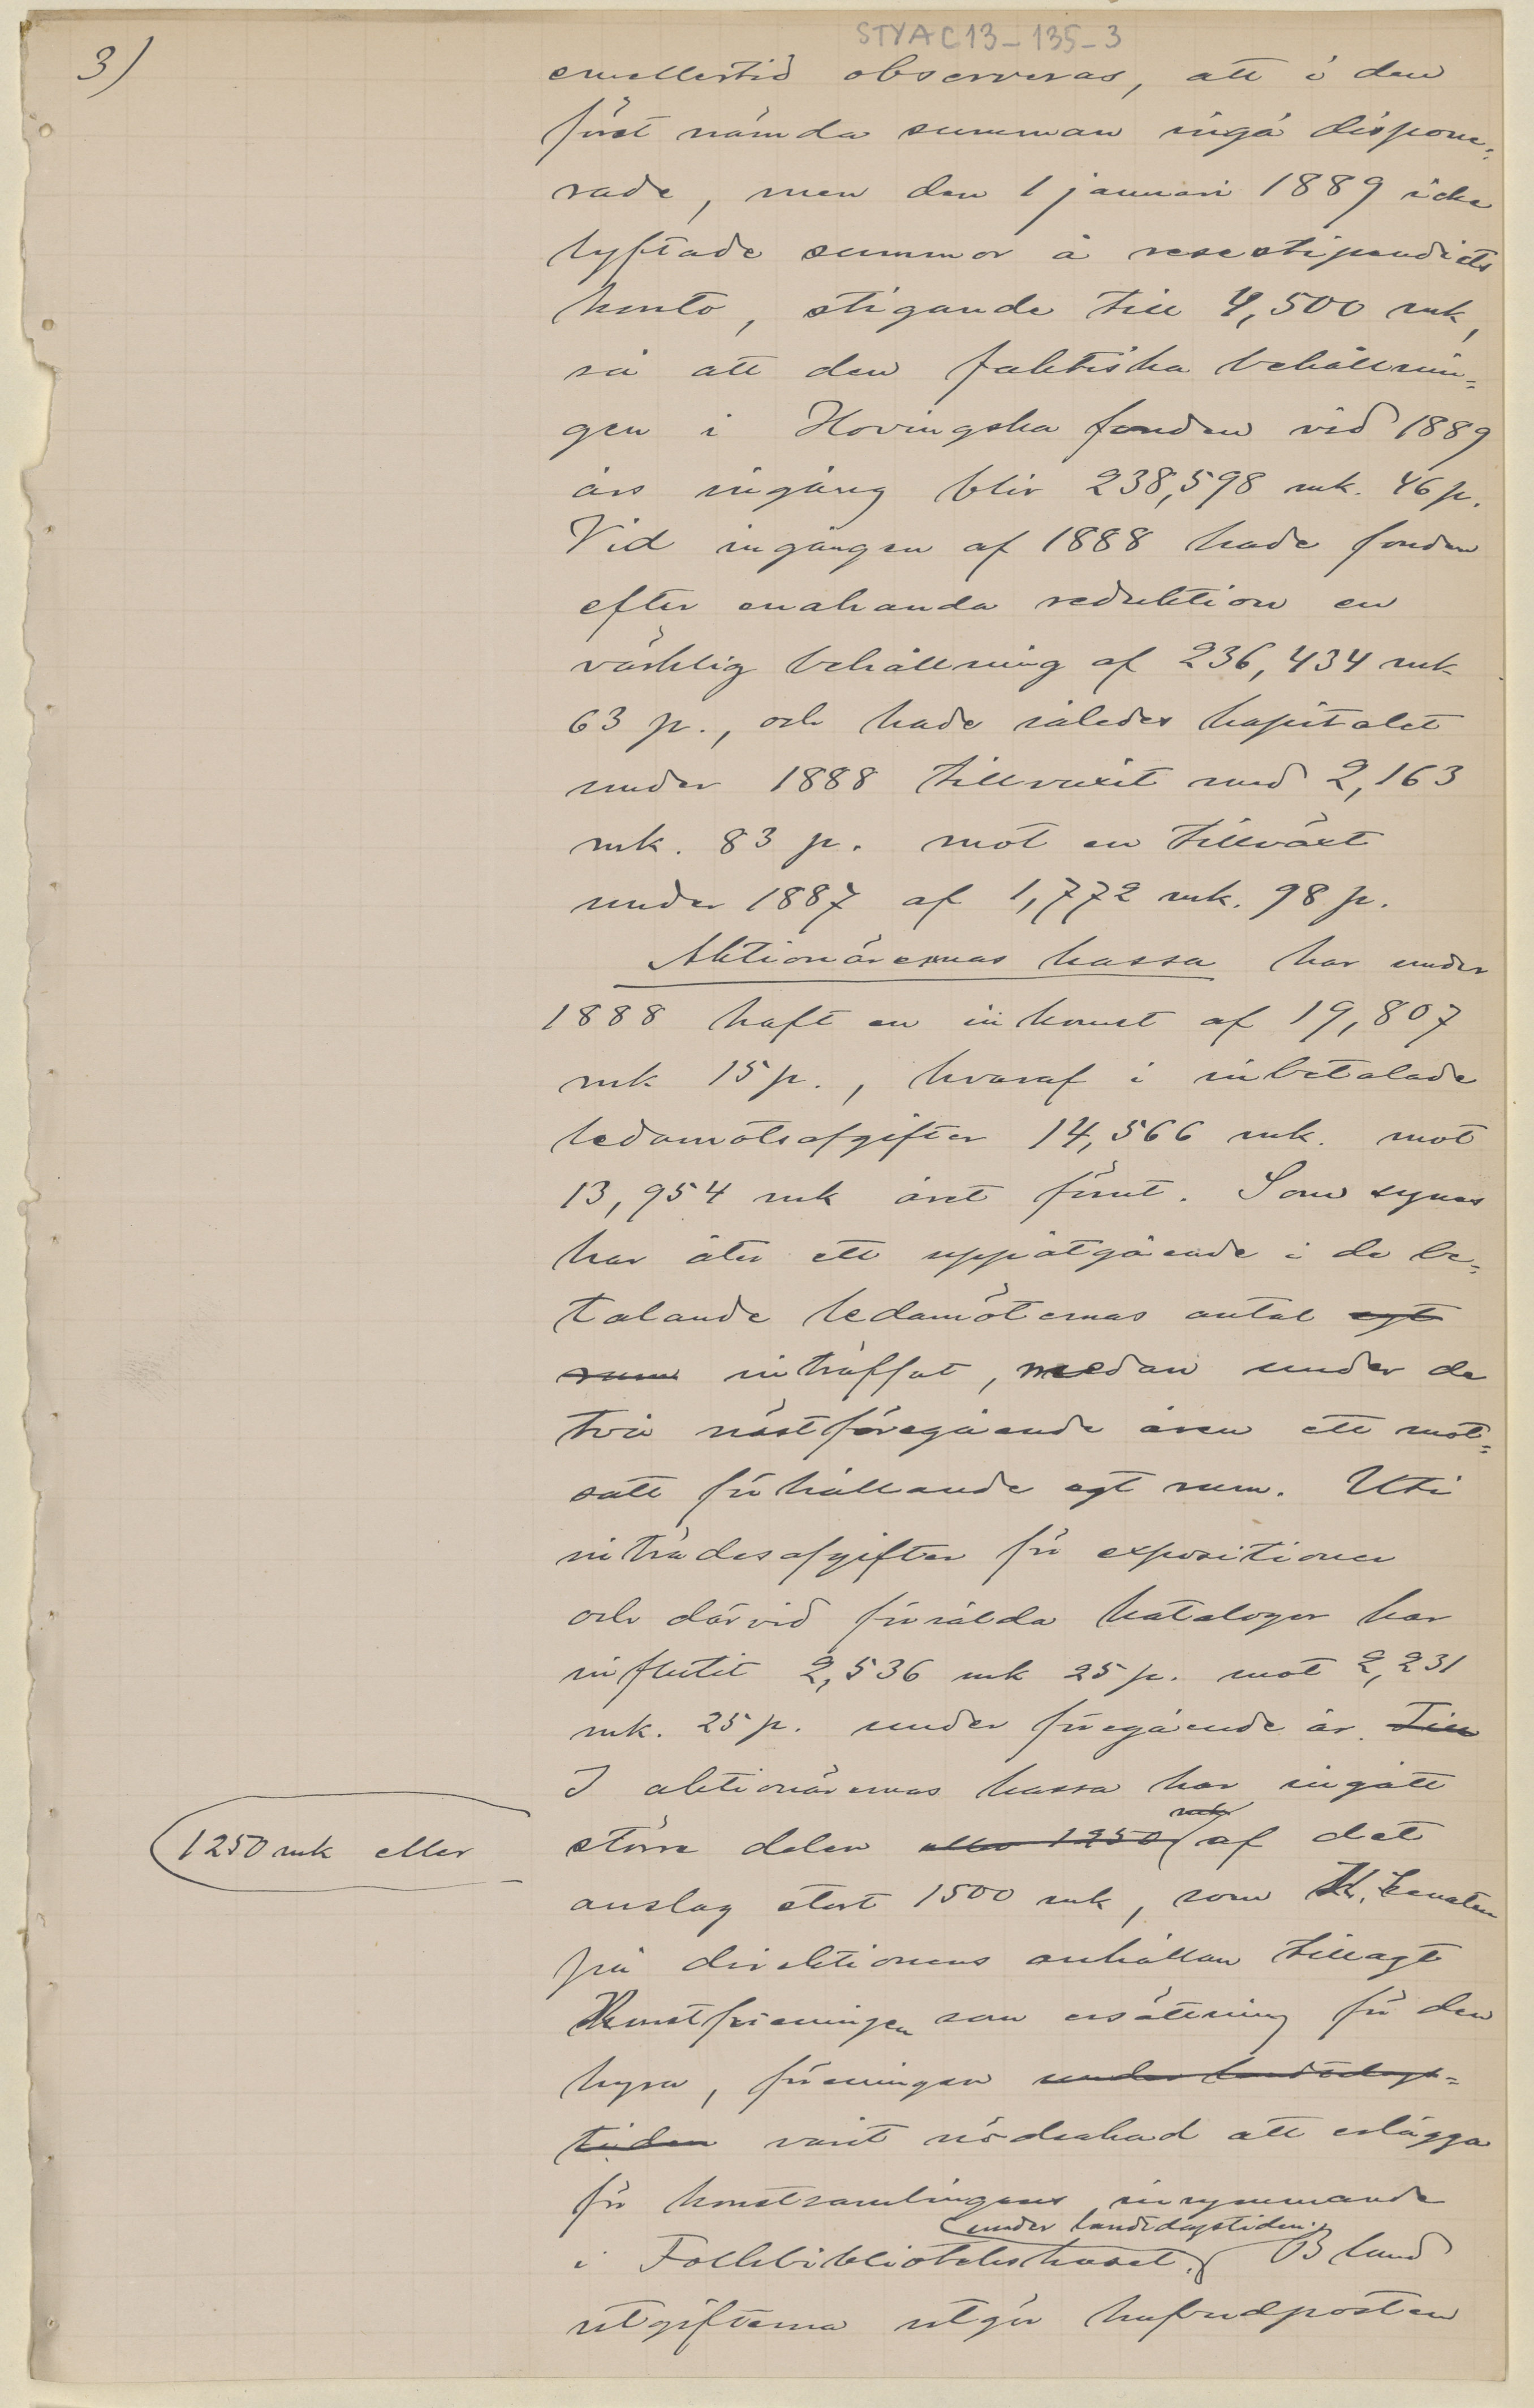 STYA C13-135-3
3)
emellertid observeras, att i den
först nämda summan ingå dispone=
rade, men den 1 januari 1889 icke
lyftade summor å resestipendiets
konto, stigande till 4,500 mk,
så att den faktiska behållnin=
gen i Hovingska fonden vid 1889
års ingång blir 238,598 mk. 46 p.
Vid ingången af 1888 hade fonden
efter enahanda reduktion en
värklig behållning af 236,434 mk
63 p., och hade således kapitalet
under 1888 tillvuxit med 2,163
mk. 83 p. mot en tillväxt
under 1887 af 1,772 mk. 98 p.
Aktionärernas kassa har under
1888 haft en inkomst af 19,807
mk 15 p., hvaraf i inbetalade
ledamotsafgifter 14,566 mk. mot
13,954 mk året förut. Som synes
har åter ett uppåtgående i de be=
talande ledamöternas antal egt
rum inträffat, medan under de
två nästföregående åren ett mot=
satt förhållande egt rum. Uti
inträdesafgifter för expositioner
och därvid försålda kataloger har
influtit 2,536 mk 25 p. mot 2,231
mk. 25 p. under föregående år. Till
I aktionärernas kassa har ingått
1250 mk eller
större delen eller 1250 mk af det
anslag stort 1500 mk, som K. Senaten
på direktionens anhållan tillagt
Konstföreningen som ersättning för den
hyra, föreningen under landtdags=
tiden varit nödsakad att erlägga
för konstsamlingens inrymmande
under landtdagstiden.
i Folkbibliotekshuset. Bland
utgifterna utgör hufvudposten